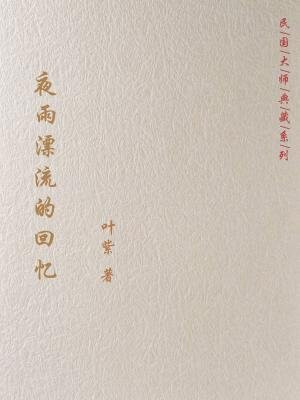 民国大师典藏系列
夜雨漂流的回忆
叶紫 著